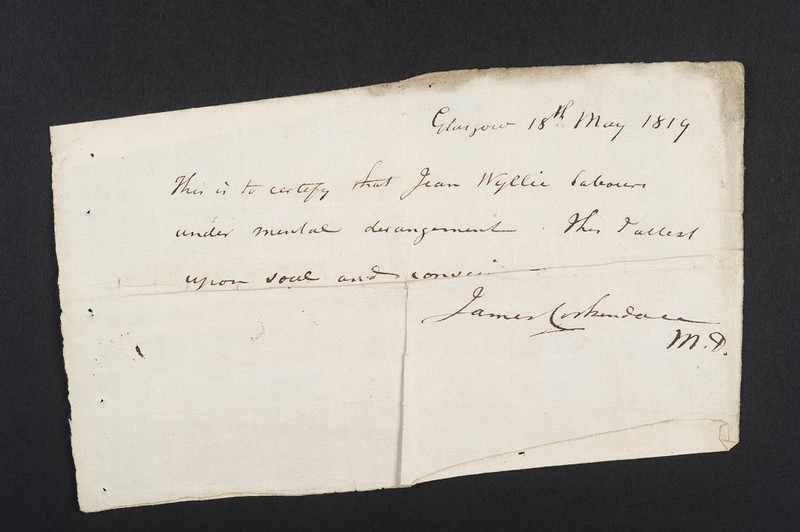 Glasgow 18th May 1819
This is to certify that Jean Wyllie labours
under mental derangement. This I attest
upon soul and
James
M.D.